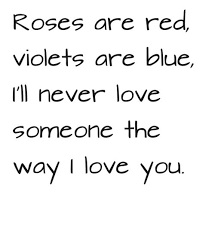 Roses are red,
violets are blue,
I'll never love
someone the
way I love you.